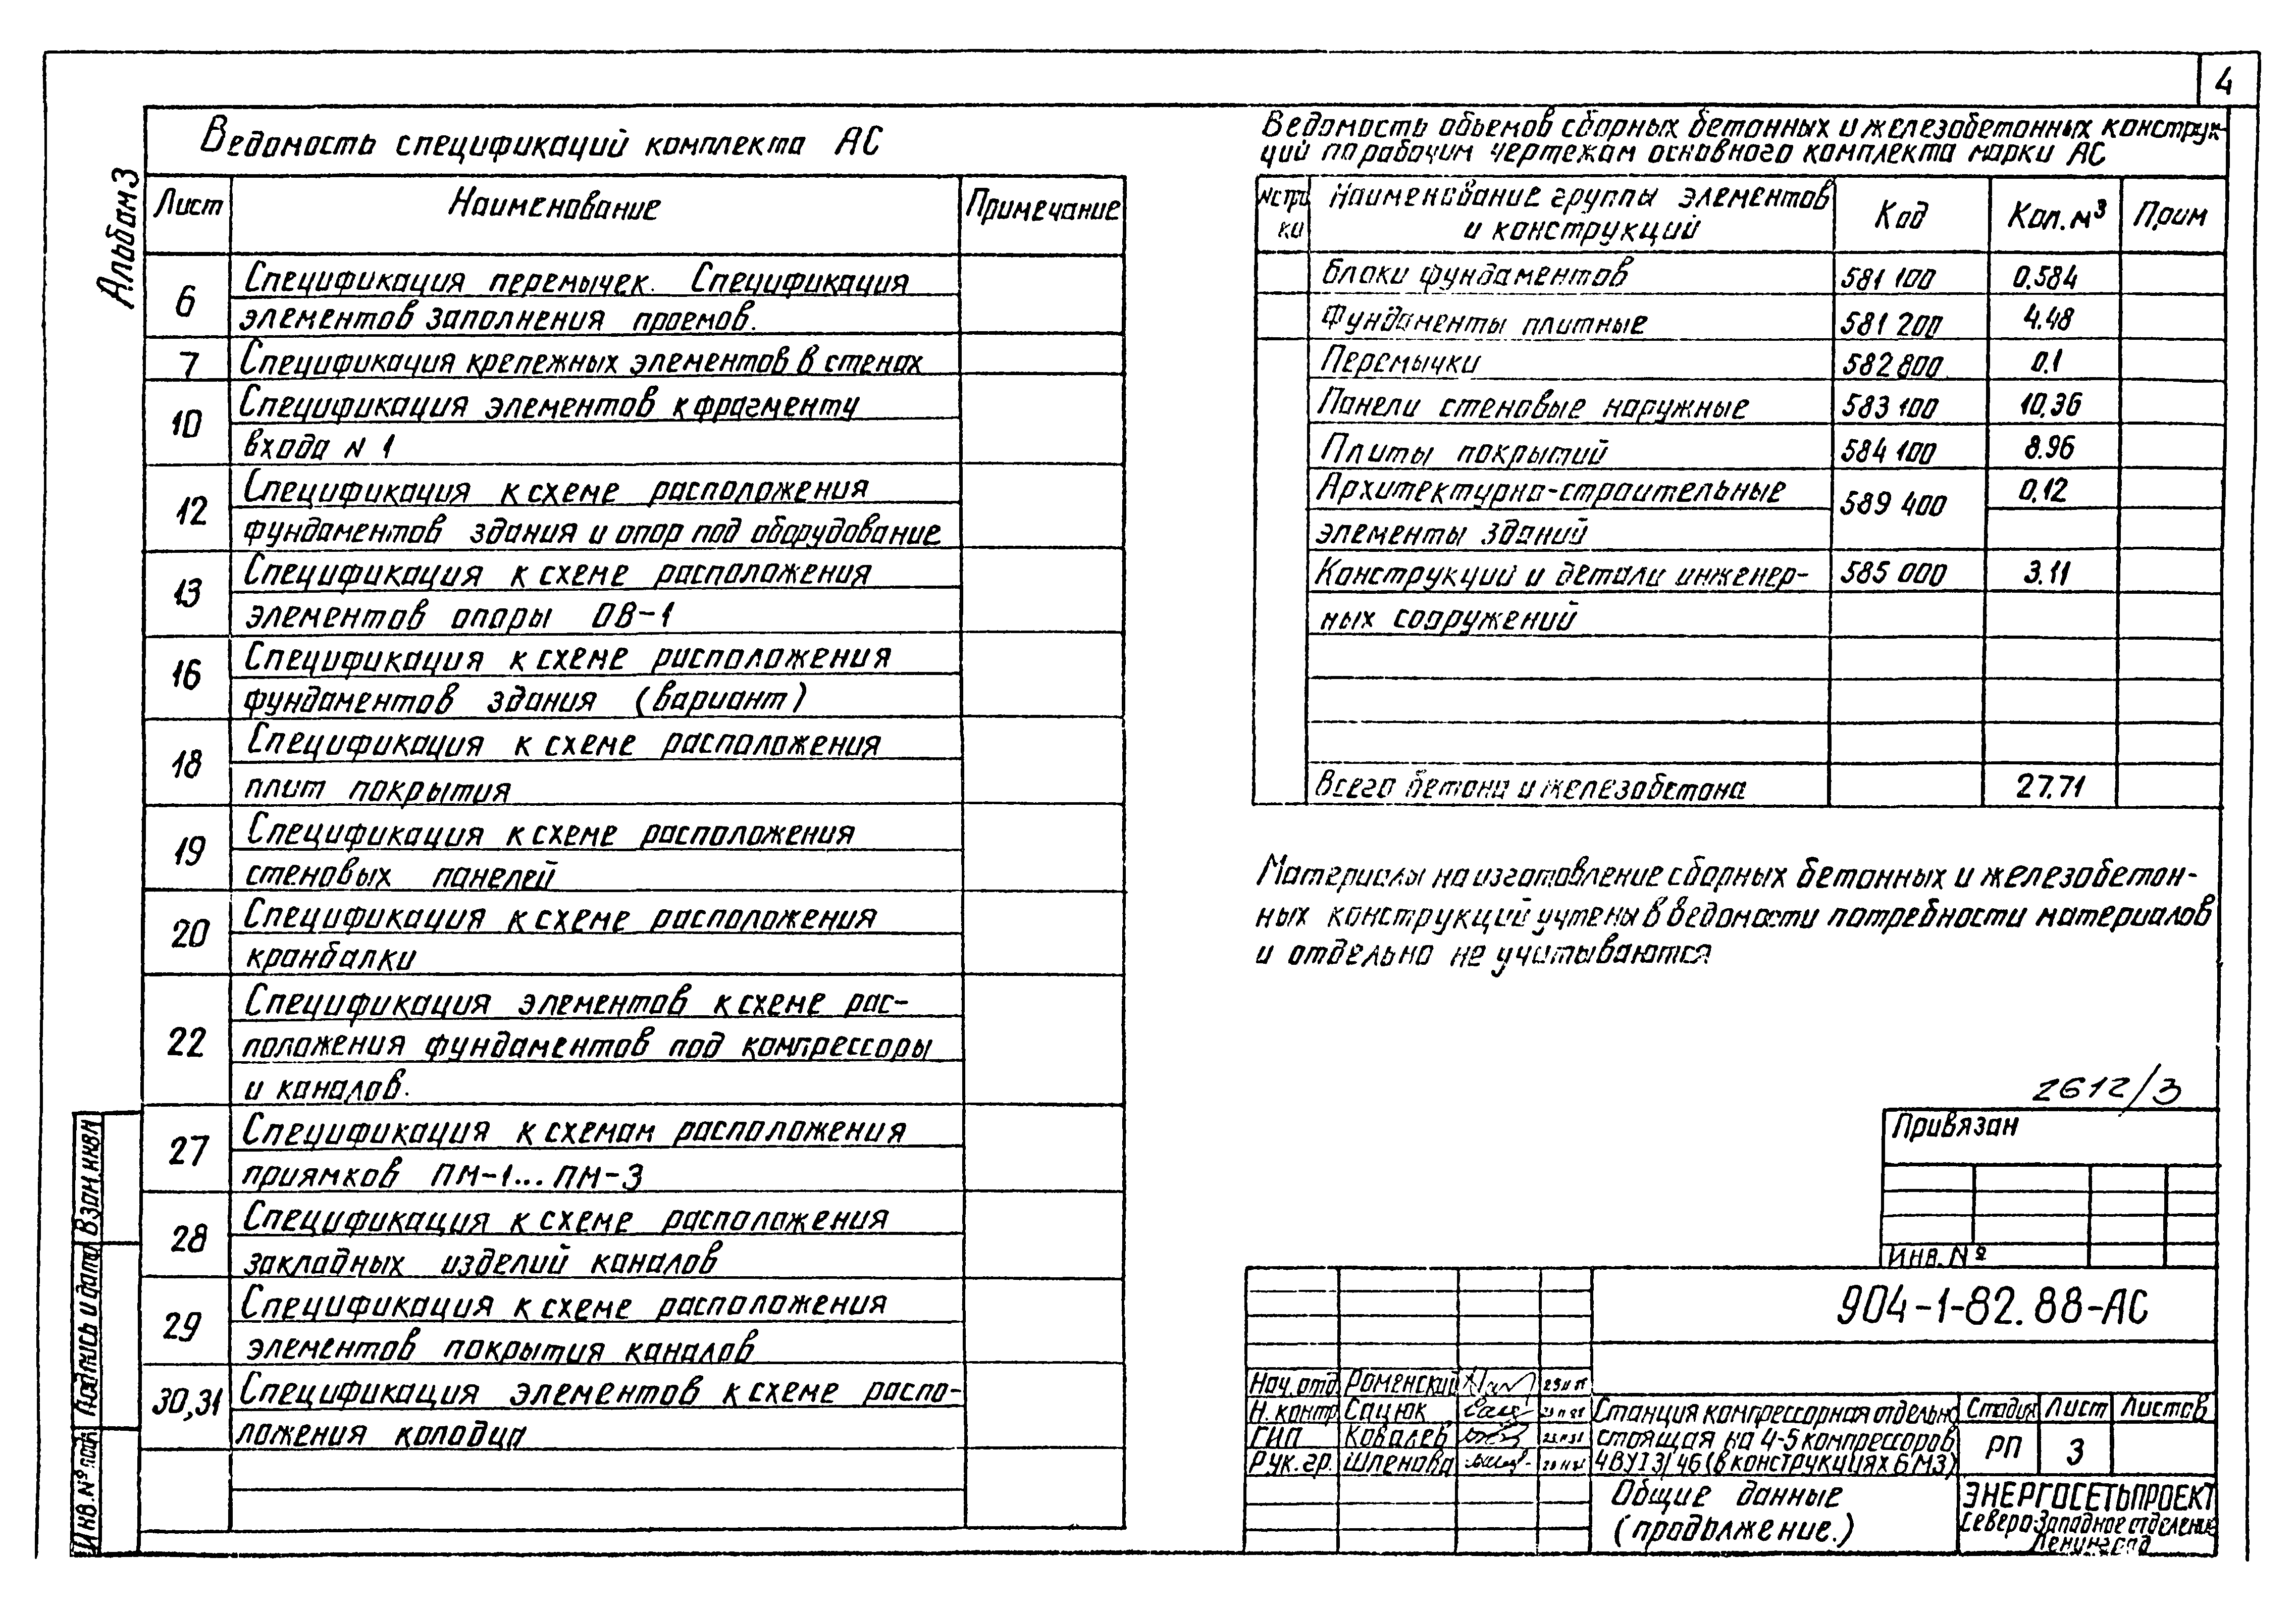 4
Альбом 3
Ведомость спецификаций комплекта АС
Лист Наименование Примечание
6 Спецификация перемычек. Спецификация
элементов заполнения проемов.
7 Спецификация крепежных элементов в стенах
10 Спецификация элементов к фрагменту
входа N 1
12 Спецификация к схеме расположения
фундаментов здания и опор под оборудование
13 Спецификация к схеме расположения
элементов опоры ОВ-1
16 Спецификация к схеме расположения
фундаментов здания (вариант)
18 Спецификация к схеме расположения
плит покрытия
19 Спецификация к схеме расположения
стеновых панелей
20 Спецификация к схеме расположения
кранбалки
22 Спецификация элементов к схеме рас-
положения фундаментов под компрессоры
и каналов.
27 Спецификация к схемам расположения
приямков ПМ-1...ПМ-3
28 Спецификация к схеме расположения
закладных изделий каналов
29 Спецификация к схеме расположения
элементов покрытия каналов
30,31 Спецификация элементов к схеме распо-
ложения колодца
Ведомость объемов сборных бетонных и железобетонных конструк-
ций по рабочим чертежам основного комплекта марки АС
Наименование группы элементов
и конструкций Код Кол. м³ Прим
Блоки фундаментов 581 100 0.584
Фундаменты плитные 581 200 4.48
Перемычки 582 800 0.1
Панели стеновые наружные 583 100 10.36
Плиты покрытий 584 100 8.96
Архитектурно-строительные 589 400 0.12
элементы зданий
Конструкций и детали инженер- 585 000 3.11
ных сооружений
Всего бетона и железобетона 27.71
Материалы на изготовление сборных бетонных и железобетон-
ных конструкций учтены в ведомости потребности материалов
и отдельно не учитываются
2612/3
Привязан
Инв. №
904-1-82.88-АС
Нач. отд Роменский
Н. контр Сацюк
ГИП Ковалев
Рук. гр. Шленова
Станция компрессорная отдельно
стоящая на 4-5 компрессоров
4ВУ1 3/46 (в конструкциях БМЗ)
Стадия Лист Листов
РП 3
Общие данные
(продолжение.)
ЭНЕРГОСЕТЬПРОЕКТ
Северо-Западное отделение
Ленинград
Взам. инв. N
Подпись и дата
Инв. № подл.